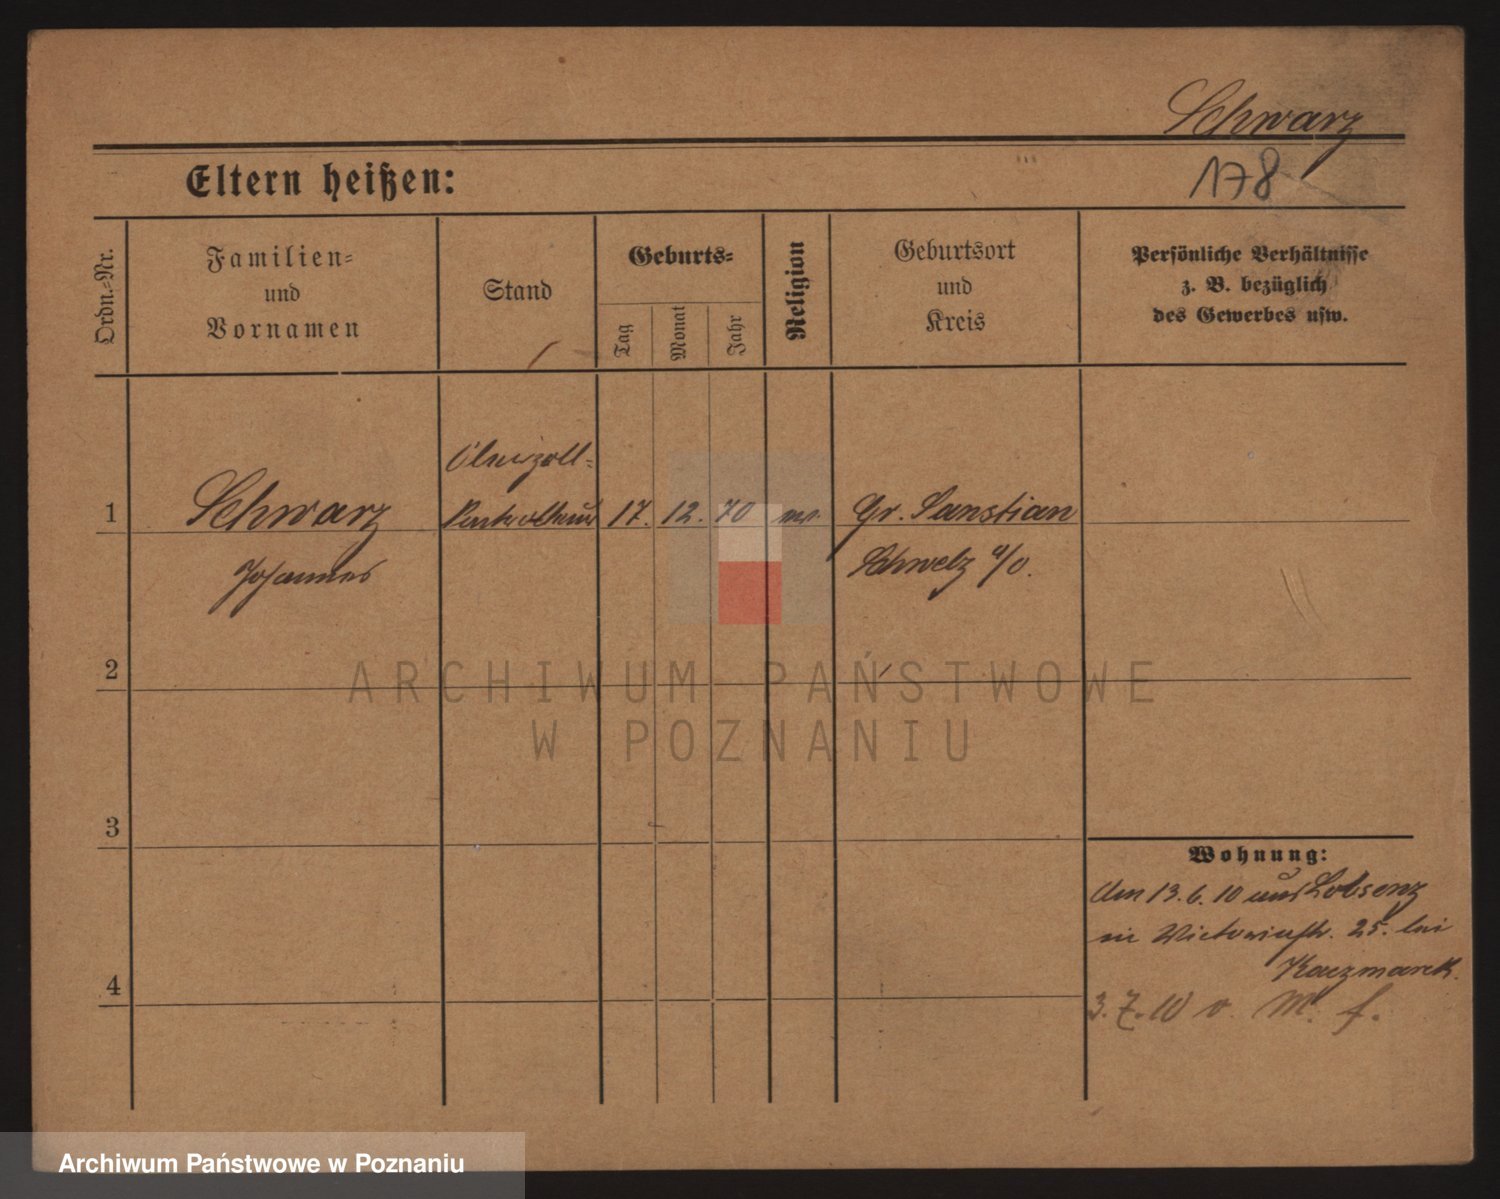 Schwarz
178
Eltern heißen:
Ordn.-Nr.
Familien-
und
Vornamen
Stand
Geburts-
Tag
Monat
Jahr
Religion
Geburtsort
und
Kreis
Persönliche Verhältnisse
z. B. bezüglich
des Gewerbes usw.
Oberzoll-
1 Schwarz 17. 12. 70 Gr. Sanskian
Johannes Schwetz a/
2
ARCHIWUM PAŃSTWOWE
W POZNANIU
3
Wohnung:
Am 13. 6. 10 aus Lobsenz
Victoriastr. 25. bei
Kaczmarek.
4
3. 7. 10 v. M. f.
Archiwum Państwowe w Poznaniu